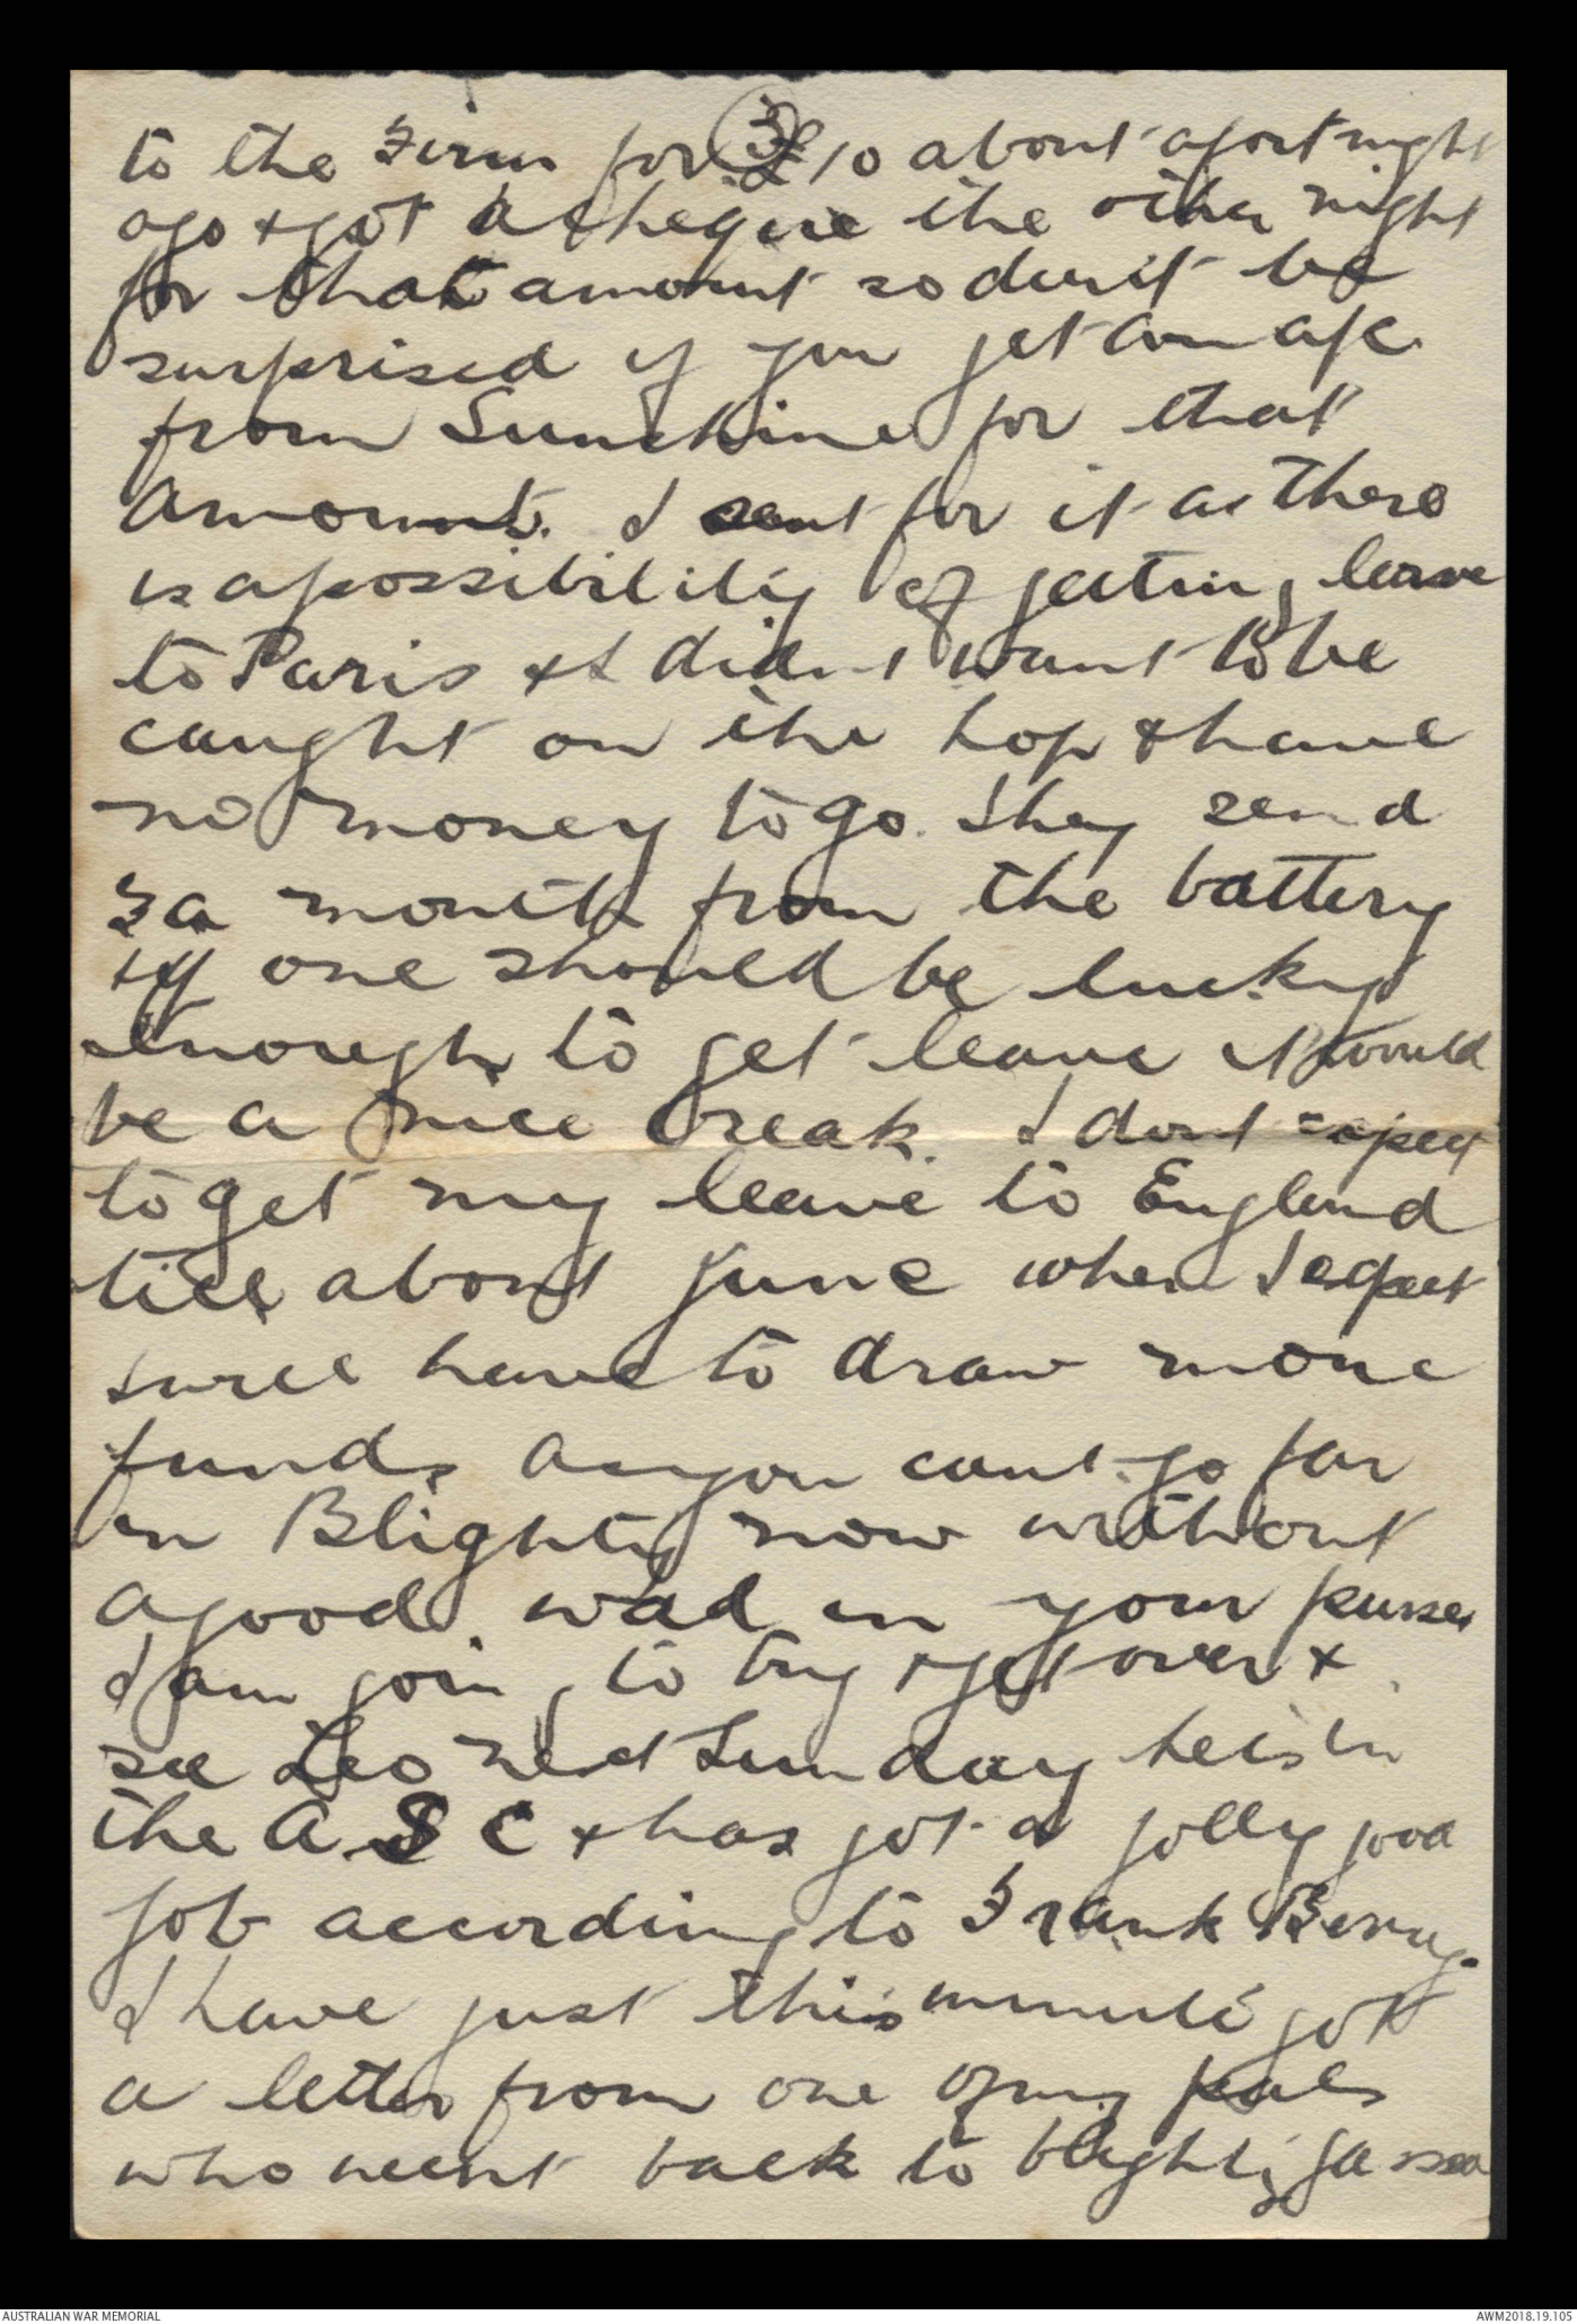 3
to the Firm for £10 about a fortnight
ago & got a cheque the other night
for that amount so dont be
surprised if you get an a/c
from Sunshine for that
amount. I sent for it as there
is a possibility of getting leave
to Paris & I didnt want to be
caught on the hop & have
no money to go. They send
3 a month from the battery
& if one should be lucky
enough to get leave it would
be a nice break. I dont expect
to get my leave to England
till about June when I expect
I will have to draw more
funds as you cant go far
in Blighty now without
a good wad in your purse
I am going to try & get over &
see Leo next Sunday he is in
the A S C & has got a jolly good
job according to Frank Berry.
I have just this minute got
a letter from one of my pals
who went back to blighty
AUSTRALIAN WAR MEMORIAL
AWM2018.19.105